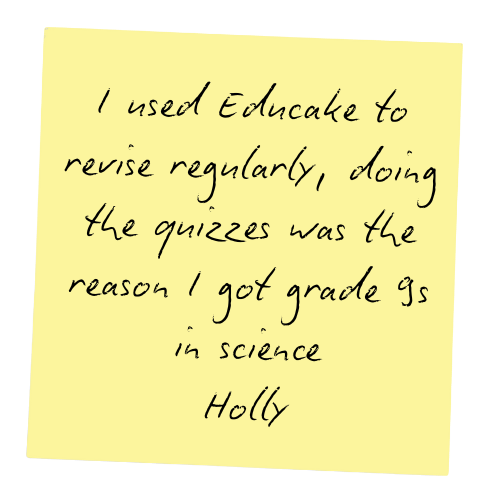 I used Educake to
revise regularly, doing
the quizzes was the
reason I got grade 9s
in science
Holly